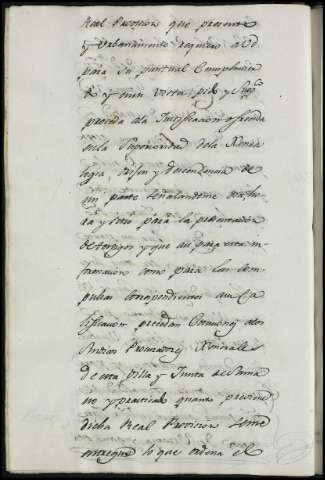 Real Provision que presento
y urbanamente requiero a Vd
para su puntual Cumplimien
to y en su vista pido y Supco
proceda ala Justificacion ofrecida
sela Superioridad dela Genea
logia, orijen y descendencia de
mi parte señalandome dia, ho
ra y sitio para la presentacion
de testigos y que asi para esta in
formacion como para las com
pulsas correspondientes a su Ca
lificacion precedan
Sindicos Procuradores Generales
de esta Villa y Junta de
no y practicado quanto previene
dicha Real Provision se me
entregue lo que ordena el